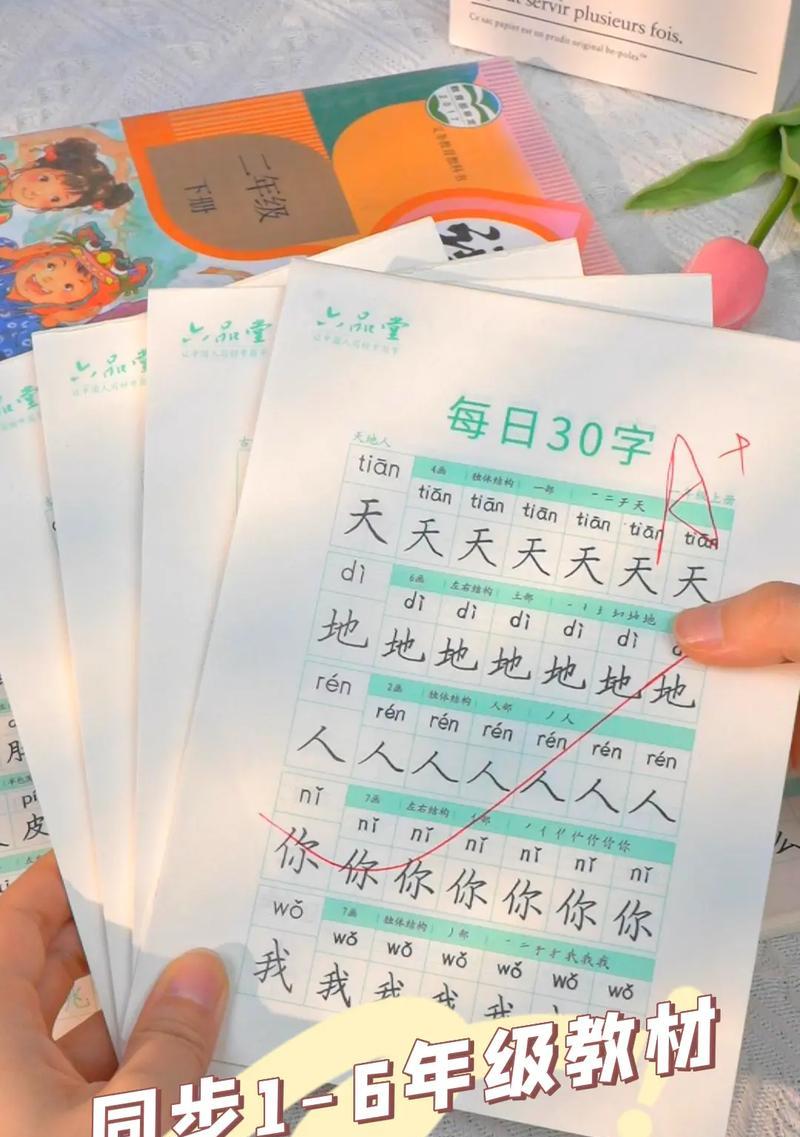 servir plusieurs fois.
Ce sac papier est un produit original be-poles™
二年级
下册
义务教育教科书
2017
六品堂
六品堂
六品堂
每日30字
天地人
tiān 4画 独体结构 一部 一二于天
tiān tiān tiān tiān tiān tiān
天 天 天 天 天 天 天
dì 6画 左右结构 土部
dì dì dì dì dì
地 地 地 地 地 地 地
rén 2画 独体结构 人部 丿人
rén rén rén rén rén rén
人 人 人 人 人 人 人
nǐ 7画 左右结构 亻部
nǐ nǐ nǐ nǐ nǐ nǐ
你 你 你 你 你 你 你
wǒ 7画 独体结构 丿部
wǒ wǒ wǒ wǒ wǒ wǒ
我 我 我 我 我
A+
皮
同步1-6年级教材